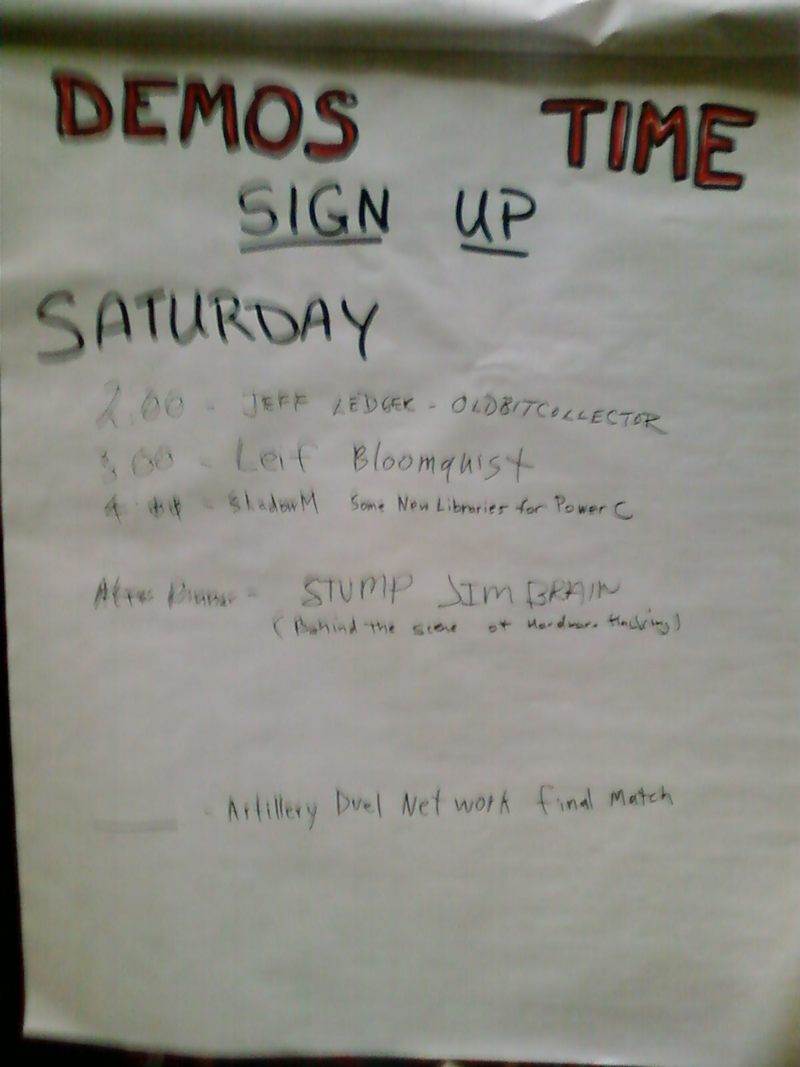 DEMOS TIME
SIGN UP
SATURDAY
2:00 - JEFF LEDGER - OLDBITCOLLECTOR
3:00 - Leif Bloomquist
4:00 - ShadowM Some New Libraries for Power C
After Dinner - STUMP JIM BRAIN
(Behind the scene of Hardware Hacking)
- Artillery Duel Network final Match